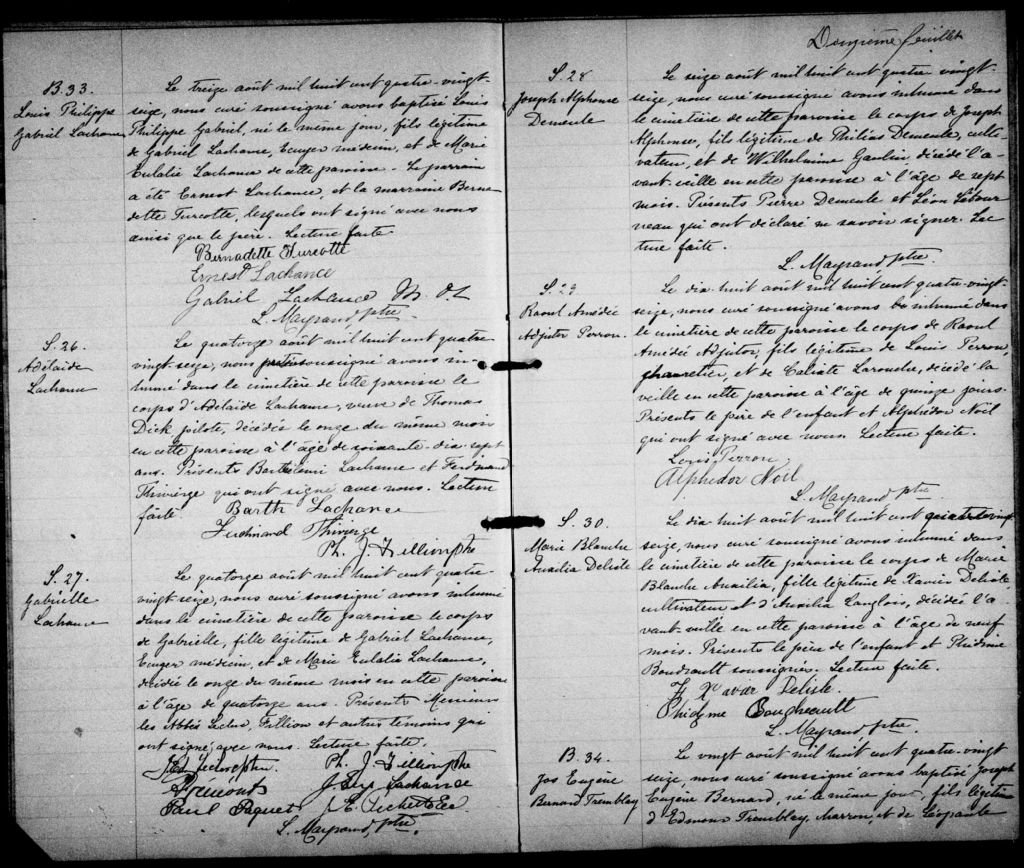 B. 33.
Louis Philippe
Gabriel Lachance
Le treize août mil huit cent quatre-vingt-
seize, nous curé soussigné avons baptisé Louis
Philippe Gabriel, né le même jour, fils légitime
de Gabriel Lachance, Ecuyer médecin, et de Marie
Eulalie Lachance de cette paroisse. Le parrain
a été Ernest Lachance, et la marraine Berna-
dette Turcotte, lesquels ont signé avec nous
ainsi que le père. Lecture faite.
Bernadette Turcotte
Ernest Lachance
Gabriel Lachance M. D.
L. Mayrand, ptre.
S. 26.
Adélaide
Lachance
Le quatorze août mil huit cent quatre
vingt-seize, nous soussigné avons in-
humé dans le cimetière de cette paroisse le
corps d'Adelaide Lachance, veuve de Thomas
Dick pilote, décédée le onze du même mois
en cette paroisse à l'âge de soixante-dix-sept
ans. Présents Barthélemi Lachance et Ferdinand
Thivierge qui ont signé avec nous. Lecture
faite.
Barth Lachance
Ferdinand Thivierge
Ph. J. Fillion, ptre
S. 27.
Gabrielle
Lachance
Le quatorze août mil huit cent quatre-
vingt-seize, nous curé soussigné avons inhumé
dans le cimetière de cette paroisse le corps
de Gabrielle, fille légitime de Gabriel Lachance,
Ecuyer médecin, et de Marie Eulalie Lachance,
décédée le onze du même mois en cette paroisse
à l'âge de quatorze ans. Présents Messieurs
les Abbés Leclerc, Fillion et autres témoins qui
ont signé avec nous. Lecture faite.
Ph. J. Fillion, ptre
Lachance
Paul Paquet J. E.
L. Mayrand, ptre.
Douzième feuillet
S. 28
Joseph Alphonse
Demeule
Le seize août mil huit cent quatre-vingt-
seize, nous curé soussigné avons inhumé dans
le cimetière de cette paroisse le corps de Joseph
Alphonse, fils légitime de Philias Demeule, culti-
vateur, et de Wilhelmine Gaulin, décédé l'a-
vant-veille en cette paroisse à l'âge de sept
mois. Présents Pierre Demeule et Léon Létour
neau qui ont déclaré ne savoir signer. Lec
ture faite.
L. Mayrand ptre.
S. 29
Raoul Amédée
Adjutor Perron.
Le dix huit août mil huit cent quatre-vingt-
seize, nous curé soussigné avons inhumé dans
le cimetière de cette paroisse le corps de Raoul
Amédée Adjutor, fils légitime de Louis Perron,
charretier, et de Calixte Larouche, décédé la
veille en cette paroisse à l'âge de quinze jours.
Présents le père de l'enfant et Alphédor Noël
qui ont signé avec nous. Lecture faite.
Louis Perron
Alphédor Noël
L. Mayrand ptre
S. 30.
Marie Blanche
Auxilia Delisle
Le dix huit août mil huit cent quatre vingt
seize, nous curé soussigné avons inhumé dans
le cimetière de cette paroisse le corps de Marie
Blanche Auxilia, fille légitime de Xavier Delisle,
cultivateur et d'Auxilia Langlois, décédée l'a-
vant-veille en cette paroisse à l'âge de neuf
mois. Présents le père de l'enfant et Phidime
Boudrault soussignés. Lecture faite.
F Xavier Delisle.
Phidyme
L. Mayrand, ptre.
B. 34.
Jos Eugène
Bernard Tremblay
Le vingt août mil huit cent quatre-vingt
seize, nous curé soussigné avons baptisé Joseph
Eugène Bernard, né le même jour, fils légitime
d'Edmond Tremblay, marron, et de Léopantee